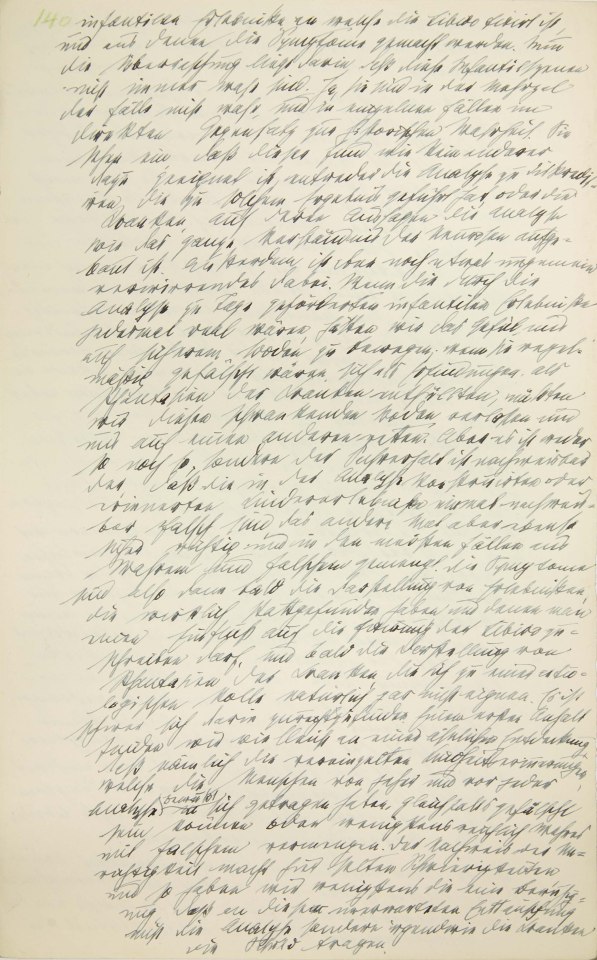 140
infantilen Erlebnisse an welche die Libido fixirt ist
und aus denen die Symptome gemacht werden. Nun
die Überraschung liegt darin daß diese Infantilszenen
nicht immer wahr sind. Ja sie sind in der Mehrzal
der Fälle nicht wahr, und in einzelnen Fällen im
direkten Gegensatz zur historischen Wahrheit. Sie
sehen ein, daß dieser Fund wie kein anderer
dazu geeignet ist, entweder die Analyse zu diskredi-
ren, die zu solchem Ergebnis geführt hat, oder die
Kranken auf deren Aussagen die Analyse
wie das ganze Verständnis der Neurosen aufge-
baut ist. Außerdem ist aber noch etwas ungemein
verwirrendes dabei. Wenn die durch die
Analyse zu Tage geförderten infantilen Erlebnisse
jedesmal real wären, hätten wir das Gefül uns
auf sicherem Boden zu bewegen, wenn sie regel-
mäßig gefälscht wären, sich als Erfindungen, als
Phantasien der Kranken enthüllten, müßten
wir diesen schwankenden Boden verlassen und
uns auf einen anderen retten. Aber es ist weder
so noch so, sondern der Sachverhalt ist nachweisbar
der, daß die in der Analyse konstruirten oder
erinnerten Kindererlebnisse einmal unstreit-
bar falsch sind das andere Mal aber ebenso
sicher richtig und in den meisten Fällen aus
Wahrem und Falschem gemengt. Die Symptome
sind also dann bald die Darstellung von Erlebnissen,
die wirklich stattgefunden haben und denen man
einen Einfluß auf die Fixirung der Libido zu-
schreiben darf, und bald die Darstellung von
Phantasien des Kranken die sich zu einer ätio-
logischen Rolle natürlich gar nicht eignen. Es ist
schwer sich darin zurechtzufinden. Einen ersten Anhalt
finden wir vielleicht an einer ähnlichen Entdeckung,
daß nämlich die vereinzelten Kindheitserinnerungen,
welche die Menschen von jeher und vor jeder
Analyse bewußt in sich getragen haben, gleichfalls gefälscht
sein können oder wenigstens reichlich Wahres
mit Falschem vermengen. Der Nachweis der Un-
richtigkeit macht hier selten Schwierigkeiten
und so haben wir wenigstens die eine Beruhig-
ung, daß an dieser unerwarteten Enttäuschung
nicht die Analyse sondern irgendwie die Kranken
die Schuld tragen.